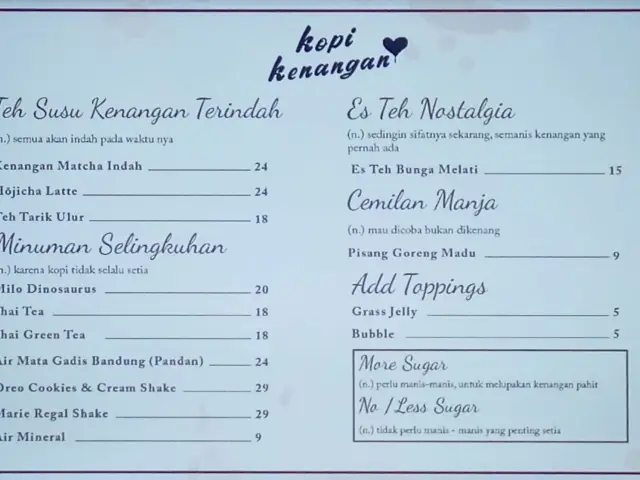 kopi
kenangan
Teh Susu Kenangan Terindah
(n.) semua akan indah pada waktu nya
Kenangan Matcha Indah 24
Hôjicha Latte 24
Teh Tarik Ulur 18
Minuman Selingkuhan
(n.) karena kopi tidak selalu setia
Milo Dinosaurus 20
Thai Tea 18
Thai Green Tea 18
Air Mata Gadis Bandung (Pandan) 24
Oreo Cookies & Cream Shake 29
Marie Regal Shake 29
Air Mineral 9
Es Teh Nostalgia
(n.) sedingin sifatnya sekarang, semanis kenangan yang
pernah ada
Es Teh Bunga Melati 15
Cemilan Manja
(n.) mau dicoba bukan dikenang
Pisang Goreng Madu 9
Add Toppings
Grass Jelly 5
Bubble 5
More Sugar
(n.) perlu manis-manis, untuk melupakan kenangan pahit
No / Less Sugar
(n.) tidak perlu manis - manis yang penting setia